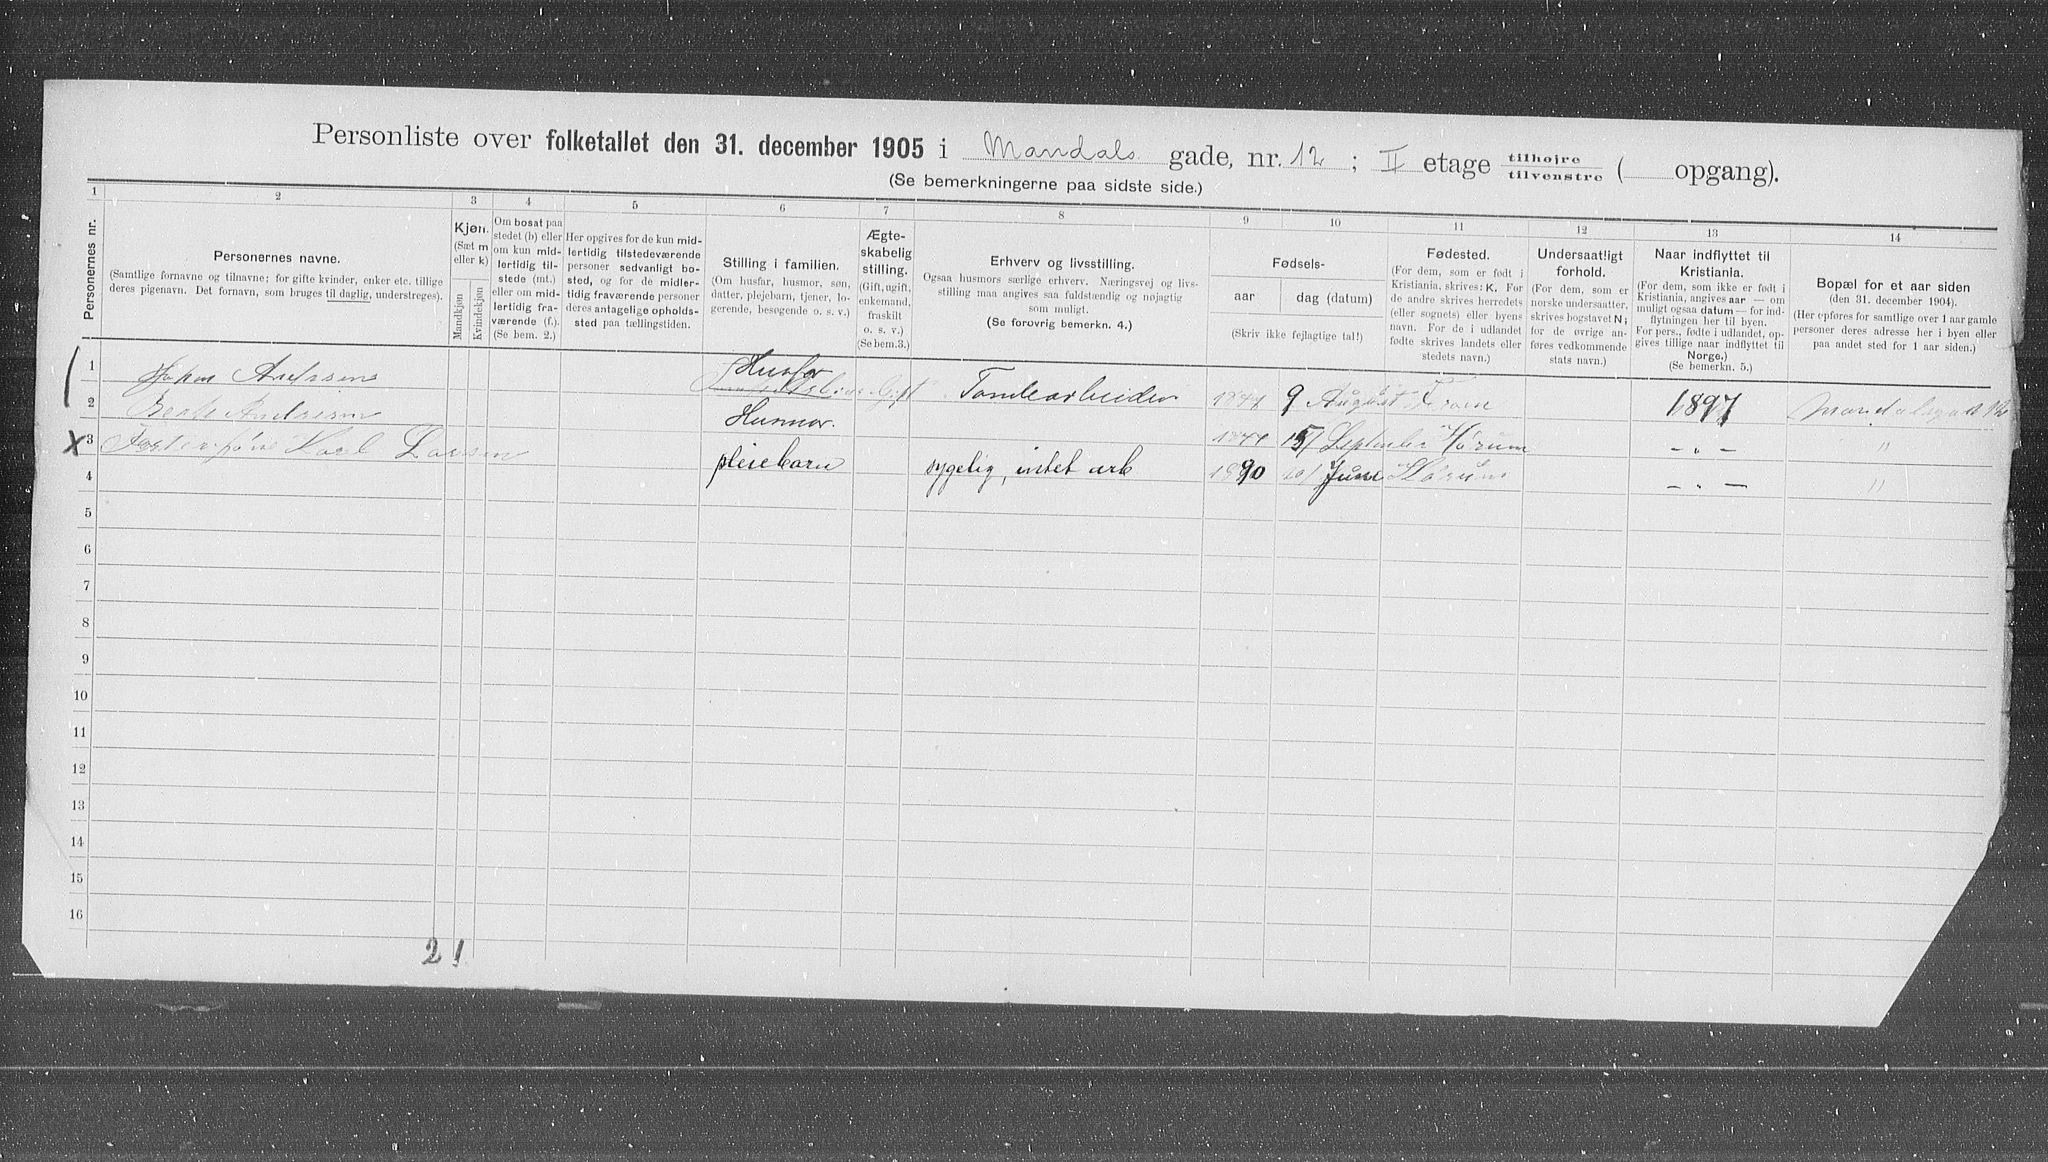 Personliste over folketallet den 31. december 1905 i Mandals gade, nr. 12 ; II etage tilhøjre tilvenstre ( opgang).
(Se bemerkningerne paa sidste side.)
1 2 3 4 5 6 7 8 9 10 11 12 13 14
Personernes nr.
Personernes navne.
(Samtlige fornavne og tilnavne; for gifte kvinder, enker etc. tillige
deres pigenavn. Det fornavn, som bruges til daglig, understreges).
Kjøn.
(Sæt m
eller k)
Mandkjøn
Kvindekjøn
Om bosat paa
stedet (b) eller
om kun mid-
lertidig til-
stede (mt.)
eller om mid-
lertidig fra-
værende (f.).
(Se bem. 2.)
Her opgives for de kun mid-
lertidig tilstedeværende
personer sedvanligt bo-
sted, og for de midler-
tidig fraværende personer
deres antagelige opholds-
sted paa tællingstiden.
Stilling i familien.
(Om husfar, husmor, søn,
datter, plejebarn, tjener, lo-
gerende, besøgende o. s. v.)
Ægte-
skabelig
stilling.
(Gift, ugift,
enkemand,
fraskilt
o. s. v.)
(Se bem.3.)
Erhverv og livsstilling.
Ogsaa husmors særlige erhverv. Næringsvej og livs-
stilling maa angives saa fuldstændig og nøjagtig
som muligt.
(Se forøvrig bemerkn. 4.)
Fødsels-
aar dag (datum)
(Skriv ikke fejlagtige tal!)
Fødested.
(For dem, som er født i
Kristiania, skrives: K. For
de andre skrives herredets
(eller sognets) eller byens
navn. For de i udlandet
fødte skrives landets eller
stedets navn.)
Undersaatligt
forhold.
(For dem, som er
norske undersaatter,
skrives bogstavet N;
for de øvrige an-
føres vedkommende
stats navn.)
Naar indflyttet til
Kristiania.
(For dem, som ikke er født i
Kristiania, angives aar — om
muligt ogsaa datum — for ind-
flytningen her til byen.
For pers., fødte i udlandet, op-
gives tillige naar indflyttet til
Norge.)
(Se bemerkn. 5.)
Bopæl for et aar siden
(den 31. december 1904).
(Her opføres for samtlige over 1 aar gamle
personer deres adresse her i byen eller
paa andet sted for 1 aar siden.)
1 Johan Andersen Husfar Gift Tomtearbeider 9 August 1897
2 Andersen Husmor 15/ September Hørum — " — "
X 3 Karl Larsen pleiebarn sygelig, intet erh 1890 June — " — "
4
5
6
7
8
9
10
11
12
13
14
15
16
2 1